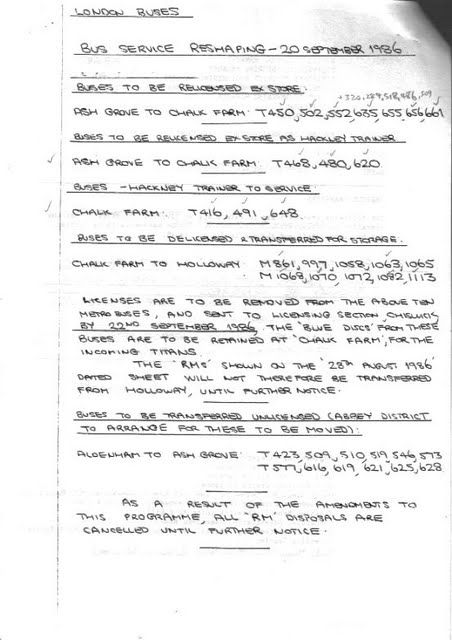 LONDON BUSES
BUS SERVICE RESHAPING - 20 SEPTEMBER 1986
BUSES TO BE RELICENSED EX STORE:
+320, 289, 518, 486, 509
ASH GROVE TO CHALK FARM: T450, 502, 552, 635, 655, 656, 661
BUSES TO BE RELICENSED EX STORE AS HACKNEY TRAINER
ASH GROVE TO CHALK FARM: T468, 480, 620
BUSES - HACKNEY TRAINER TO SERVICE:
CHALK FARM: T416, 491, 648.
BUSES TO BE DELICENSED & TRANSFERRED FOR STORAGE.
CHALK FARM TO HOLLOWAY: M861, 997, 1058, 1063, 1065
M1068, 1070, 1072, 1082, 1113
LICENSES ARE TO BE REMOVED FROM THE ABOVE TEN
METROBUSES, AND SENT TO LICENSING SECTION, CHISWICK,
BY 22ND SEPTEMBER 1986, THE 'BLUE DISCS' FROM THESE
BUSES ARE TO BE RETAINED AT 'CHALK FARM', FOR THE
INCOMING TITANS.
THE 'RMS' SHOWN ON THE '28TH AUGUST 1986'
DATED SHEET WILL NOT THEREFORE BE TRANSFERRED
FROM HOLLOWAY, UNTIL FURTHER NOTICE.
BUSES TO BE TRANSFERRED UNLICENSED (ABBEY DISTRICT
TO ARRANGE FOR THESE TO BE MOVED):
ALDENHAM TO ASH GROVE: T423, 509, 510, 519, 546, 573
T577, 616, 619, 621, 625, 628
AS A RESULT OF THE AMENDMENTS TO
THIS PROGRAMME, ALL 'RM' DISPOSALS ARE
CANCELLED UNTIL FURTHER NOTICE.